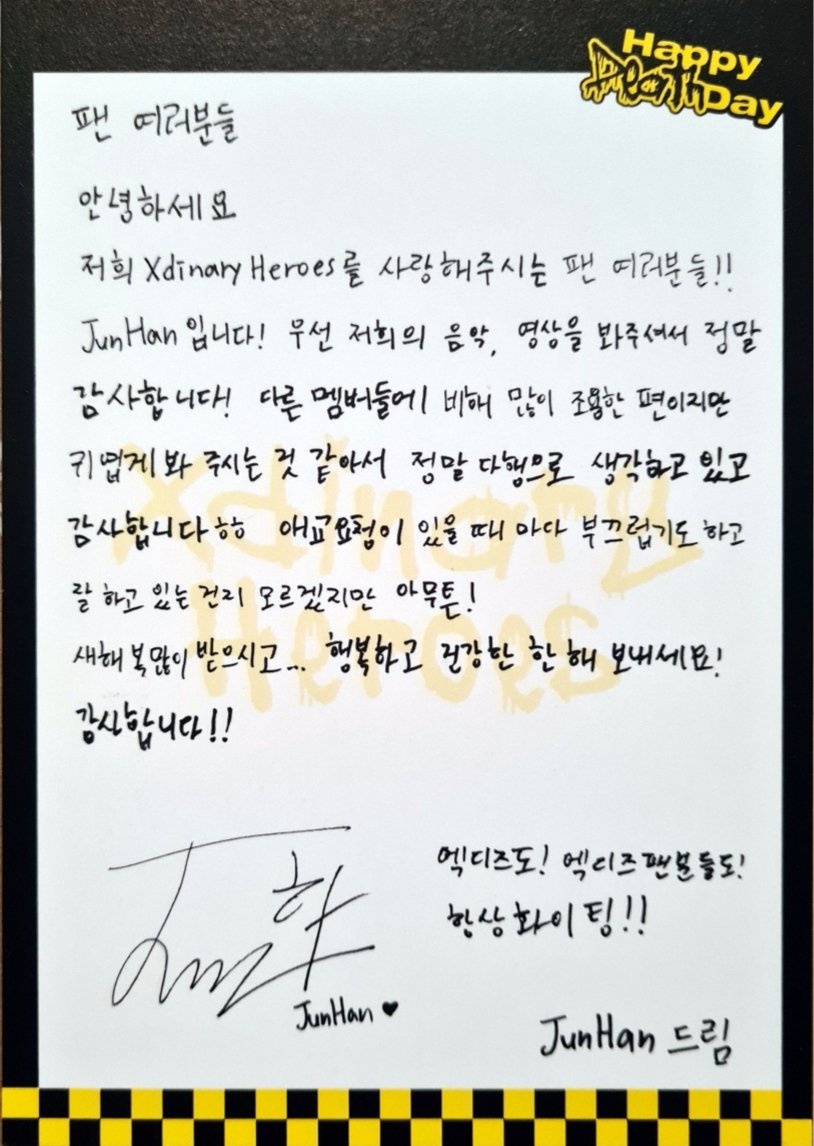 Happy
Death Day
팬 여러분들
안녕하세요
저희 Xdinary Heroes를 사랑해주시는 팬 여러분들!!
JunHan입니다! 우선 저희의 음악, 영상을 봐주셔서 정말
감사합니다! 다른 멤버들에 비해 많이 조용한 편이지만
귀엽게 봐 주시는 것 같아서 정말 다행으로 생각하고 있고
감사합니다ㅎㅎ 애교요청이 있을 때 마다 부끄럽기도 하고
잘 하고 있는건지 모르겠지만 아무튼!
새해 복많이 받으시고... 행복하고 건강한 한 해 보내세요!
감사합니다!!
Xdinary
Heroes
엑디즈도! 엑디즈팬분들도!
항상 화이팅!!
Jun한
JunHan ♥
JunHan 드림